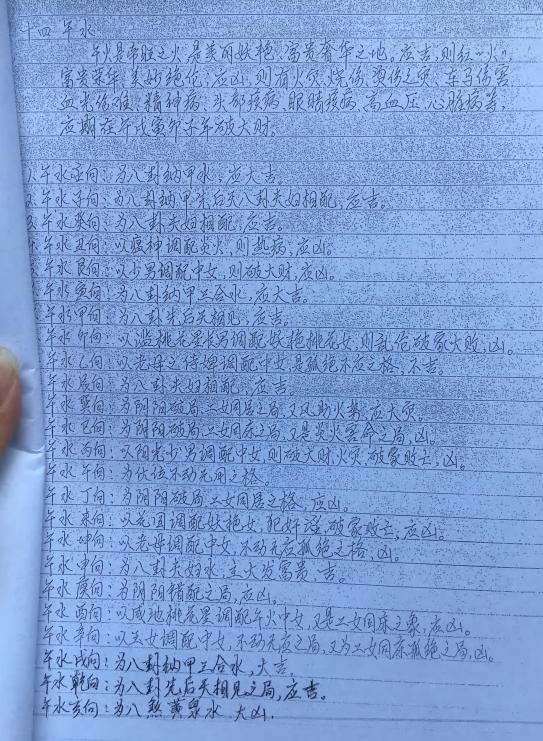 十四 午水
午火是帝旺之火,是美丽妖艳、富贵奢华之地。应吉,则红"火",
富贵荣华,美妙绝伦;应凶,则有火灾、烧伤、烫伤之灾、车马伤害
血光伤难、精神病、头部疾病、眼睛疾病、高血压、心脏病等,
应期在午戌寅卯子年破大财。
午水壬向:为八卦纳甲水,应大吉。
午水子向:为八卦纳甲先后天八卦夫妇相配,应吉。
午水癸向:为八卦夫妇相配,应吉。
午水丑向:以瘟神调配炎火,则热病,应凶。
午水艮向:以少男调配中女,则破大财,应凶。
午水寅向:为八卦纳甲三合水,应大吉。
午水甲向:为八卦先后天相见,应吉。
午水卯向:以滥桃花星长男调配妖艳桃花女,则乱伦破家大败,凶。
午水乙向:以老母之侍婢调配中女,是孤绝不应之格,不吉。
午水辰向:为八卦夫妇相配,应吉。
午水巽向:为阴阳破局二女同居之局,又风助火势,应大灾。
午水巳向:为阴阳破局二女同床之局,又是炎火害命之局,凶。
午水丙向:以阳光少男调配中女,则破大财,火灾,破家败亡,凶。
午水午向:为伏位不动无用之格。
午水丁向:为阴阳破局二女同居之格,应凶。
午水未向:以花园调配妖艳女,犯奸淫,破家败亡,应凶。
午水坤向:以老母调配中女,不动无应孤绝之格,凶。
午水申向:为八卦夫妇水,主大发富贵,吉。
午水庚向:为阴阳错配之局,应凶。
午水酉向:以咸池桃花星调配午火中女,又是二女同床之象,应凶。
午水辛向:以美女调配中女,不动无应之局,又为二女同床孤绝之局,凶。
午水戌向:为八卦纳甲三合水,大吉。
午水乾向:为八卦先后天相见之局,应吉。
午水亥向:为八煞黄泉水,大凶.